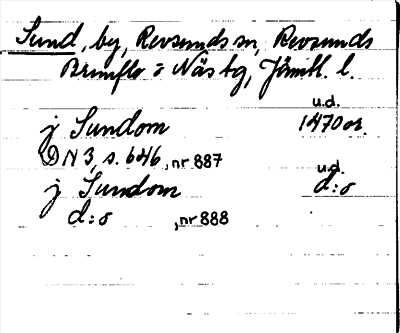 Sund, by, Revsunds sn, Revsunds
Brunflo o Näs tg, Jämtl. l.
u.d.
j Sundom 1470 or.
DN 3, s. 646, nr 887
u.d.
j Sundom d:o
d:o , nr 888